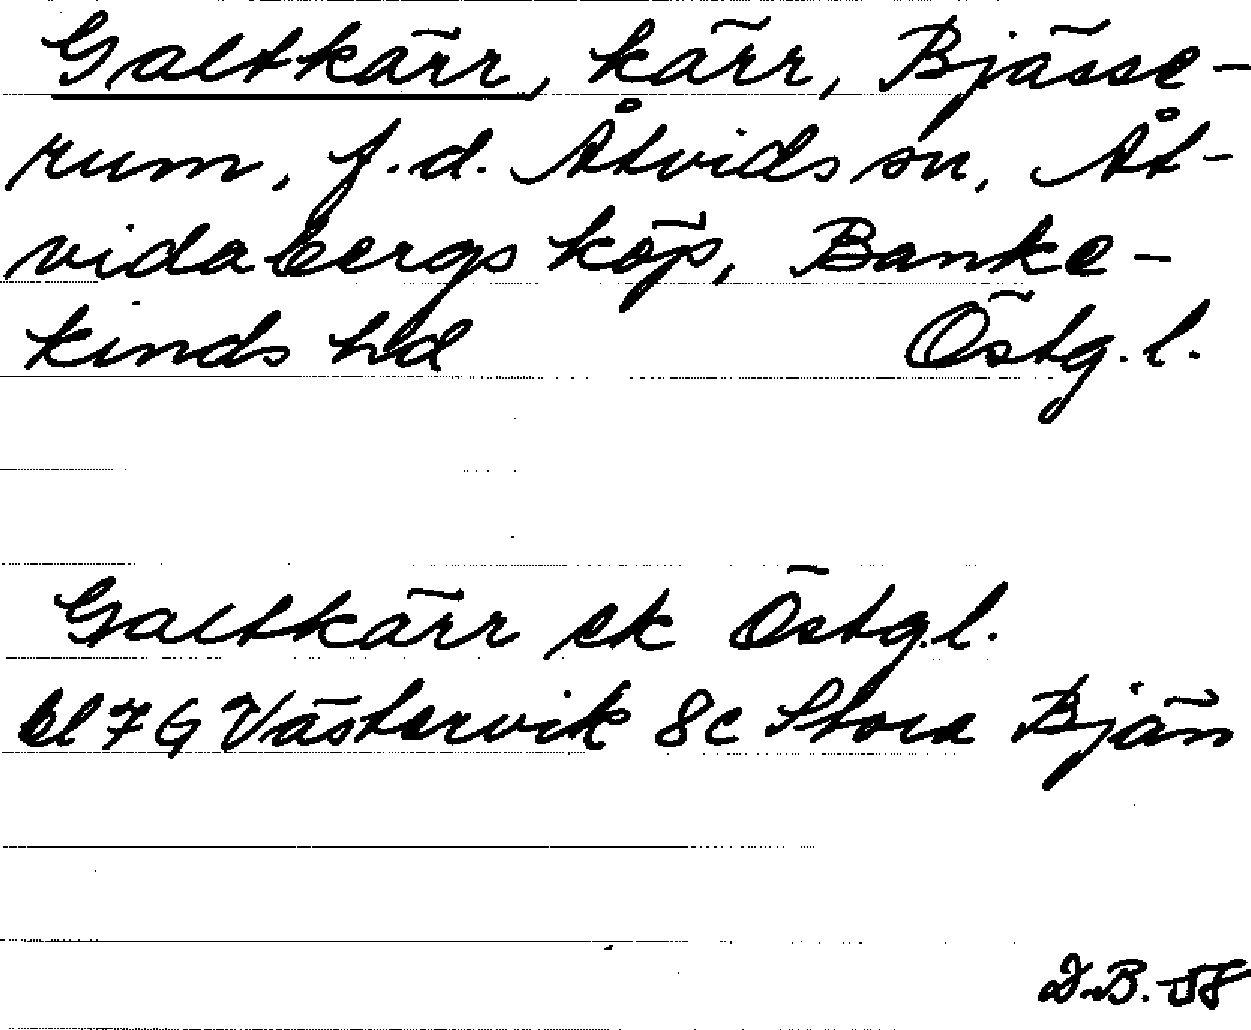 Galtkärr, kärr, Bjässe-
rum, f.d. Åtvids sn, Åt-
vidabergs köp, Banke-
kinds hd Östg.l.
Galtkärr ek Östg.l.
bl 7G Västervik 8c Stora Bjän
D.B. -58